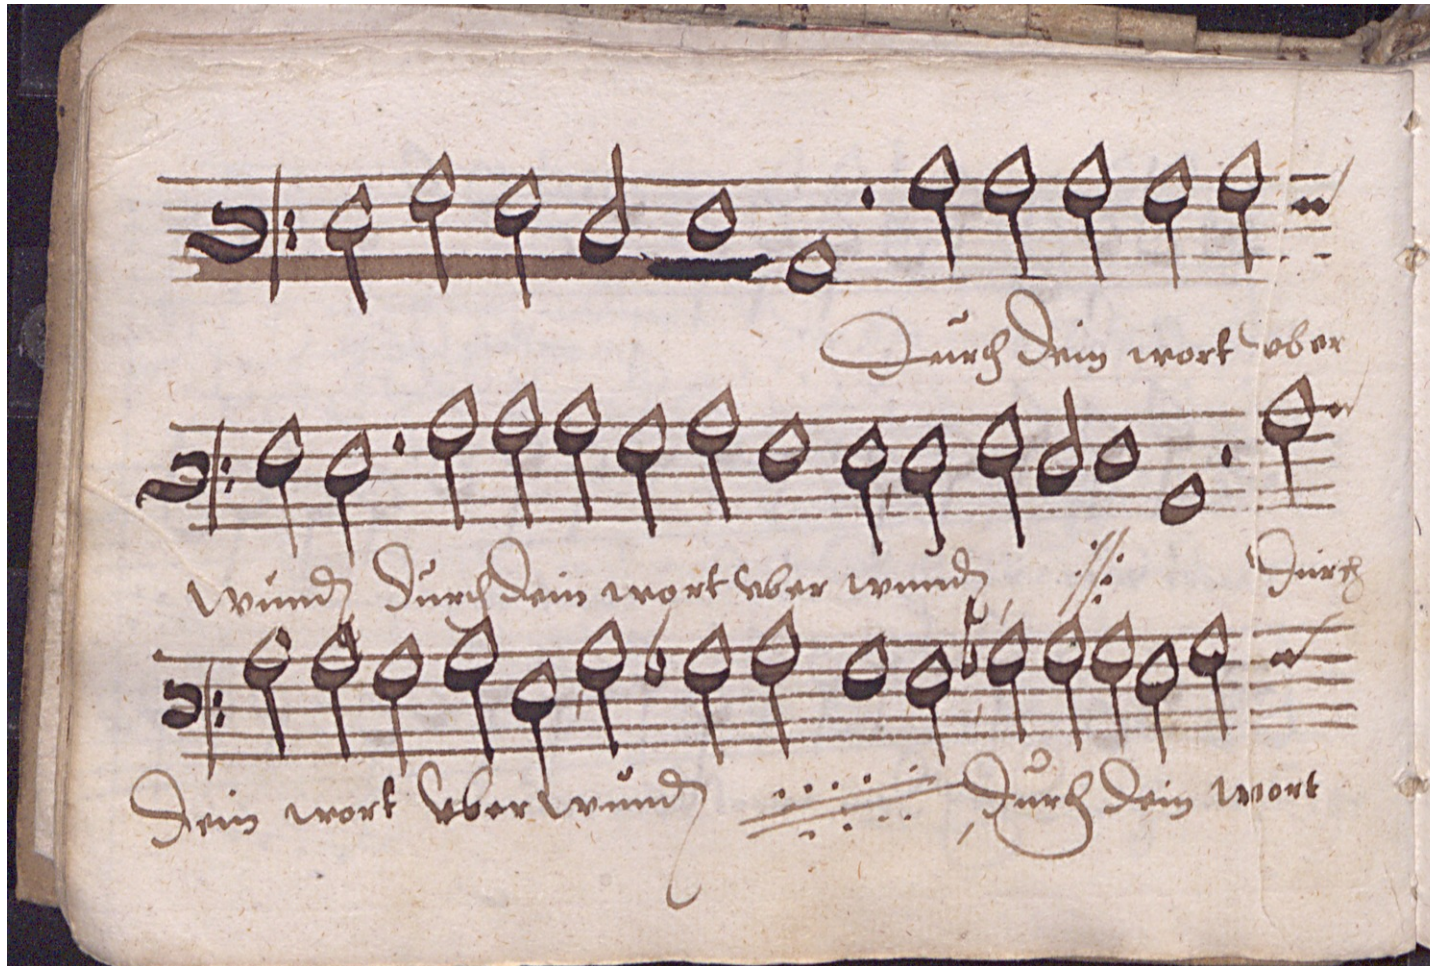 Durch dein wort vber
wund Durch dein wort vber wund Durch
dein wort vber wund Durch dein wort